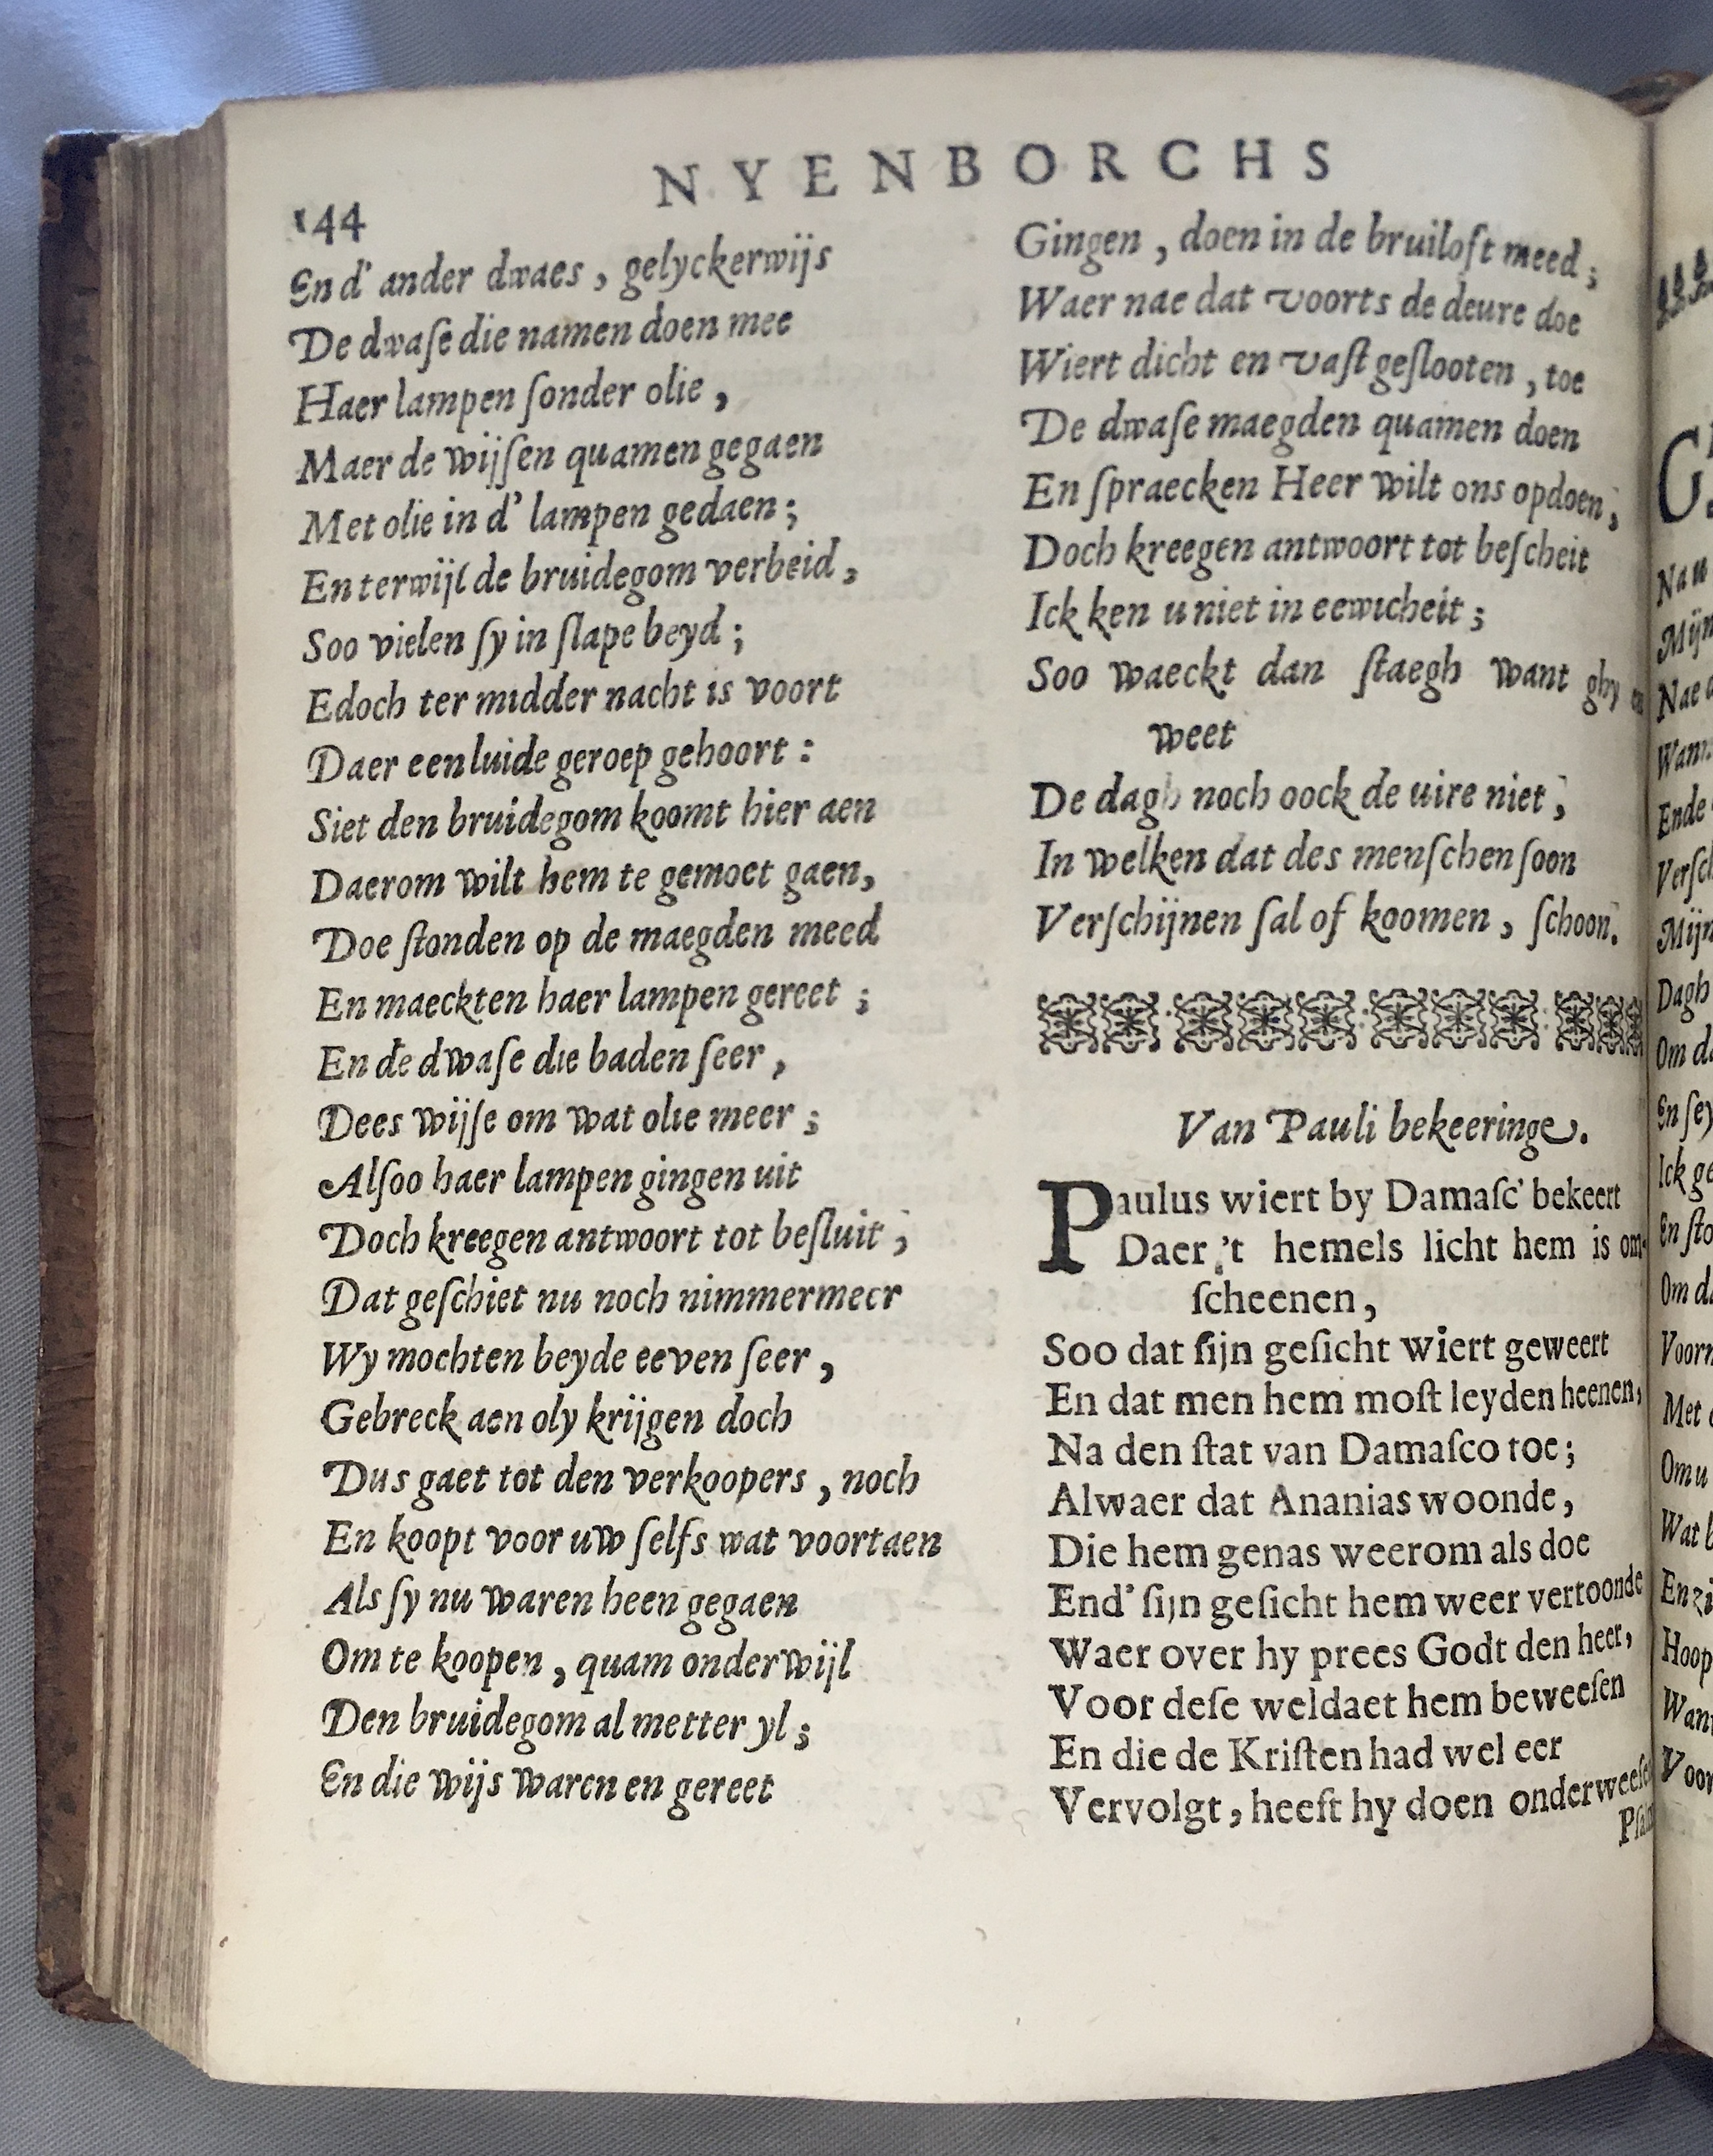 NYENBORCHS
144
En d' ander dwaes, gelyckerwijs
De dwaſe die namen doen mee
Haer lampen ſonder olie,
Maer de wijſen quamen gegaen
Met olie in d' lampen gedaen;
En terwijl de bruidegom verbeid,
Soo vielen ſy in ſlape beyd;
Edoch ter midder nacht is voort
Daer een luide geroep gehoort:
Siet den bruidegom koomt hier aen
Daerom wilt hem te gemoet gaen,
Doe ſtonden op de maegden meed
En maeckten haer lampen gereet;
En de dwaſe die baden ſeer,
Dees wijſe om wat olie meer;
Alſoo haer lampen gingen uit
Doch kreegen antwoort tot beſluit,
Dat geſchiet nu noch nimmermeer
Wy mochten beyde eeven ſeer,
Gebreck aen oly krijgen doch
Dus gaet tot den verkoopers, noch
En koopt voor uw ſelfs wat voortaen
Als ſy nu waren heen gegaen
Om te koopen, quam onderwijl
Den bruidegom al metter yl;
En die wijs waren en gereet
Gingen, doen in de bruiloft meed;
Waer nae dat voorts de deure doe
Wiert dicht en vaſt geſlooten, toe
De dwaſe maegden quamen doen
En ſpraecken Heer wilt ons opdoen,
Doch kreegen antwoort tot beſcheit
Ick ken u niet in eewicheit;
Soo waeckt dan ſtaegh want ghy en
weet
De dagh noch oock de uire niet,
In welken dat des menſchen ſoon
Verſchijnen ſal of koomen, ſchoon.
Van Pauli bekeeringe.
Paulus wiert by Damaſc' bekeert
Daer 't hemels licht hem is om-
ſcheenen,
Soo dat ſijn geſicht wiert geweert
En dat men hem moſt leyden heenen,
Na den ſtat van Damaſco toe;
Alwaer dat Ananias woonde,
Die hem genas weerom als doe
End' ſijn geſicht hem weer vertoonde
Waer over hy prees Godt den heer,
Voor deſe weldaet hem beweeſen
En die de Kriſten had wel eer
Vervolgt, heeft hy doen onderweeſen
Na u
Mijn
Nae
Wann
Ende
Verſch
Mijn
Dagh
Om da
En ſey
Ick ge
En ſto
Om da
Voorn
Met
Om u
Wat
En zi
Hoop
Want
Voor